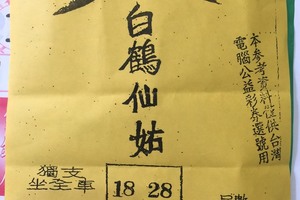 本參考資料僅供台灣
電腦公益彩券選號用
白鶴仙姑
獨支
坐全車
18 28